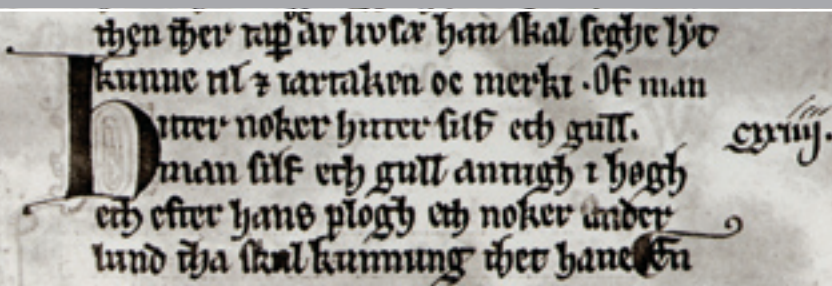 then ther ar han skal seghe
kunne til ⁊ iartaken oc merki · Of man
Hitter noker hitter silf eth gull. cxiiij.
man silf eth gull antugh i høgh
eth efter hans plogh eth noker ander
lund tha skal kunnung thet haue En